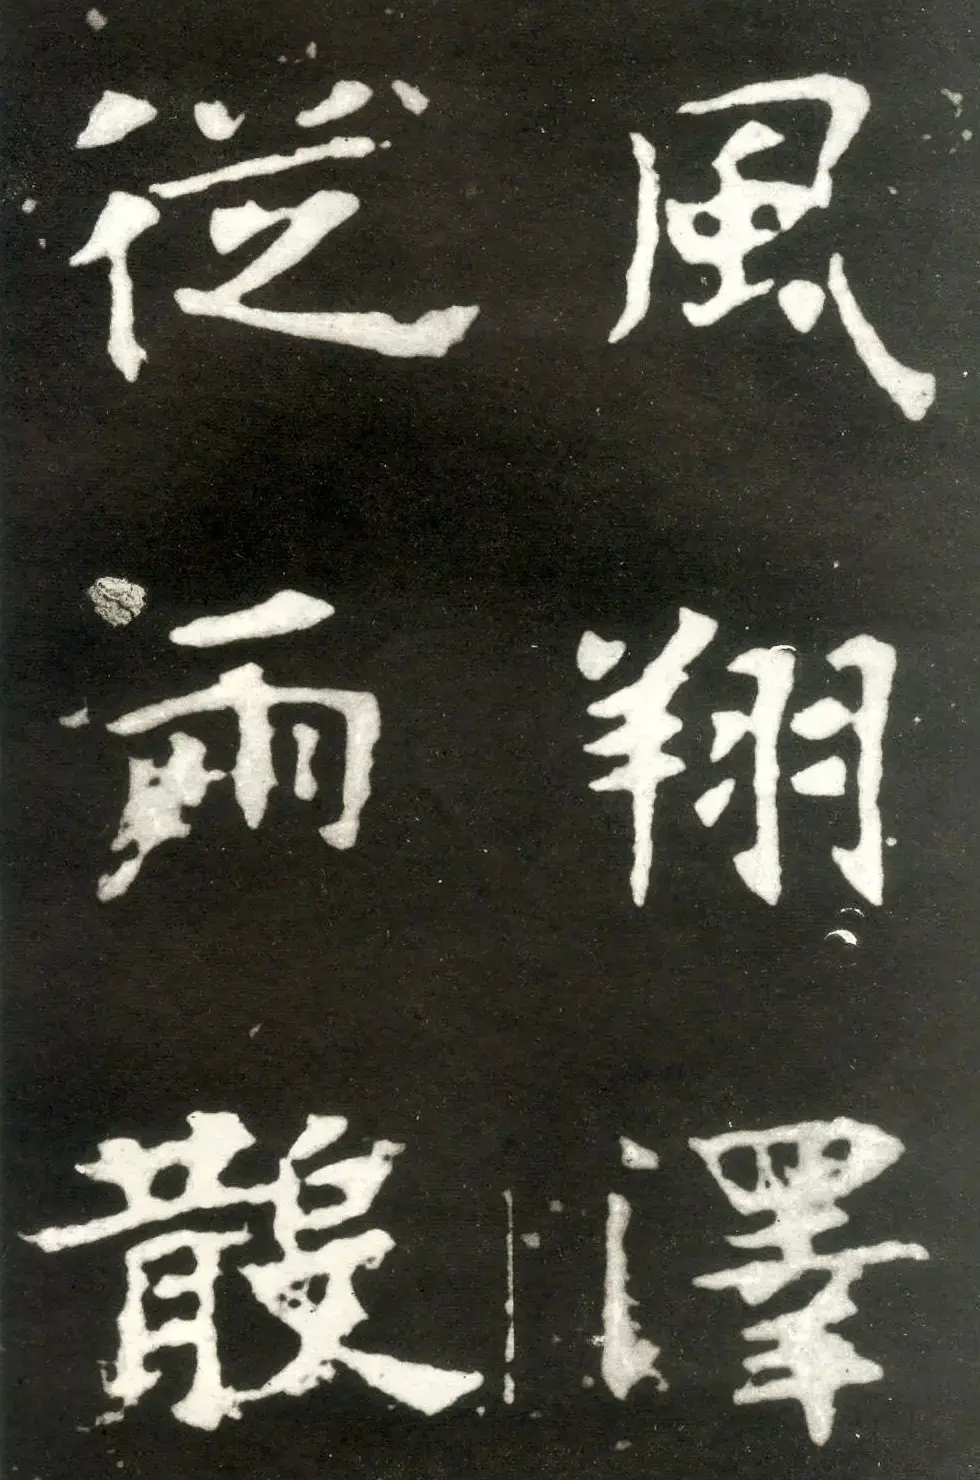 風翔澤
從雨散